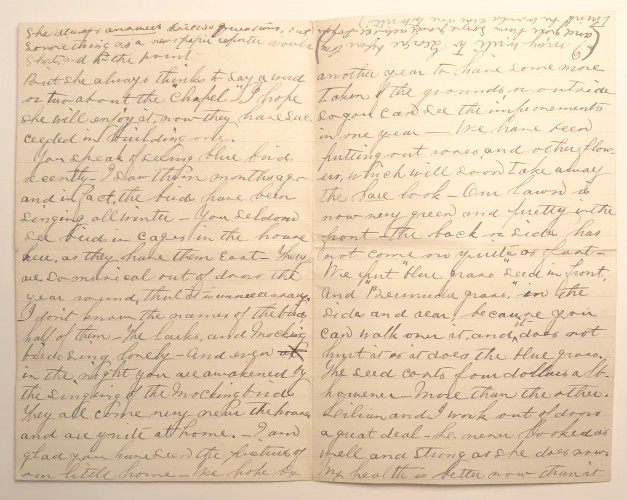 She always answers Lillie's questions, but
something as a newspaper reporter would
short, and to the point.
But she always thinks to say a word
or two about the "Chapel" I hope
she will enjoy it, now they have suc-
ceeded in building one.
You speak of seeing blue birds
recently - I saw them months ago
and in fact, the birds have been
singing all winter - You seldom
see birds in cages in the house
here, as they have them East - They
are so musical out of doors the
year round, that it is unnecessary.
I don't know the names of the birds
half of them - The larks, and Mocking
birds sing lovely - And even
in the night you are awakened by
the singing of the Mocking birds
They all come very near the house,
and are quite at home. - I am
glad you have seen the pictures of
our little home - We hope by
(I may write to
and
another year to have some more
taken of the grounds, or outside
so you can see the improvements
in one year - We have been
putting out roses, and other flow-
ers, which will soon take away
the bare look - Our lawn is
now very green and pretty in the
front - the back or side has
not come on quite as fast -
We put "blue grass" seed in front,
and "Bermuda grass," in the
side and rear, because you
can walk over it, and it does not
hurt it as it does the blue grass.
The seed costs four dollars a lb.
however - More than the other.
Lillian and I work out of doors
a great deal - he never looked as
well and strong as she does now.
My health is better now than it